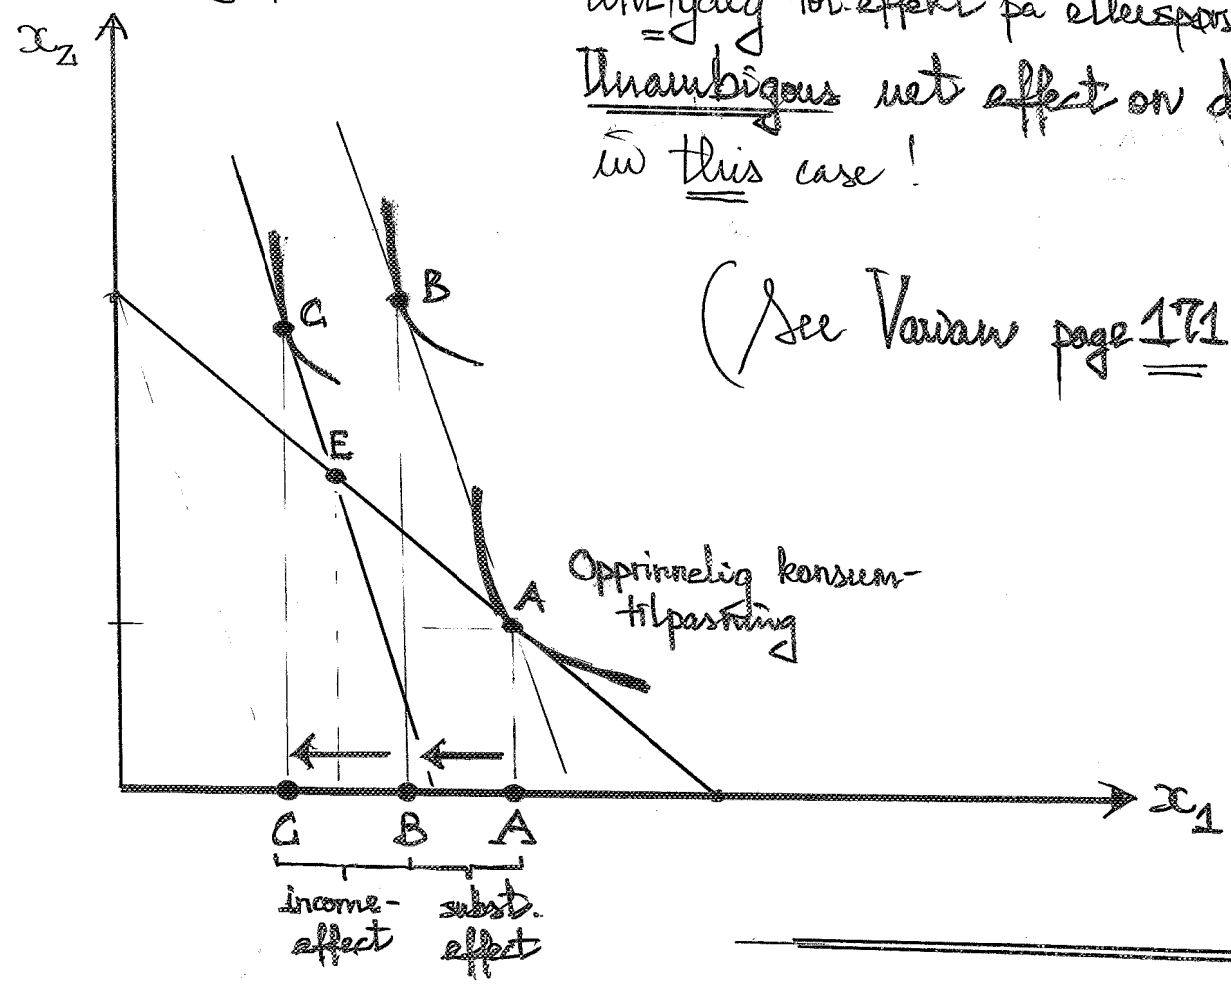 tot. effekt på etterspørs
Unambigous net effect on d
in this case !
x₂
B
C
(See Varian page 171
E
Opprinnelig konsum-
tilpasning
A
x₁
C B A
income- subst.
effect effect